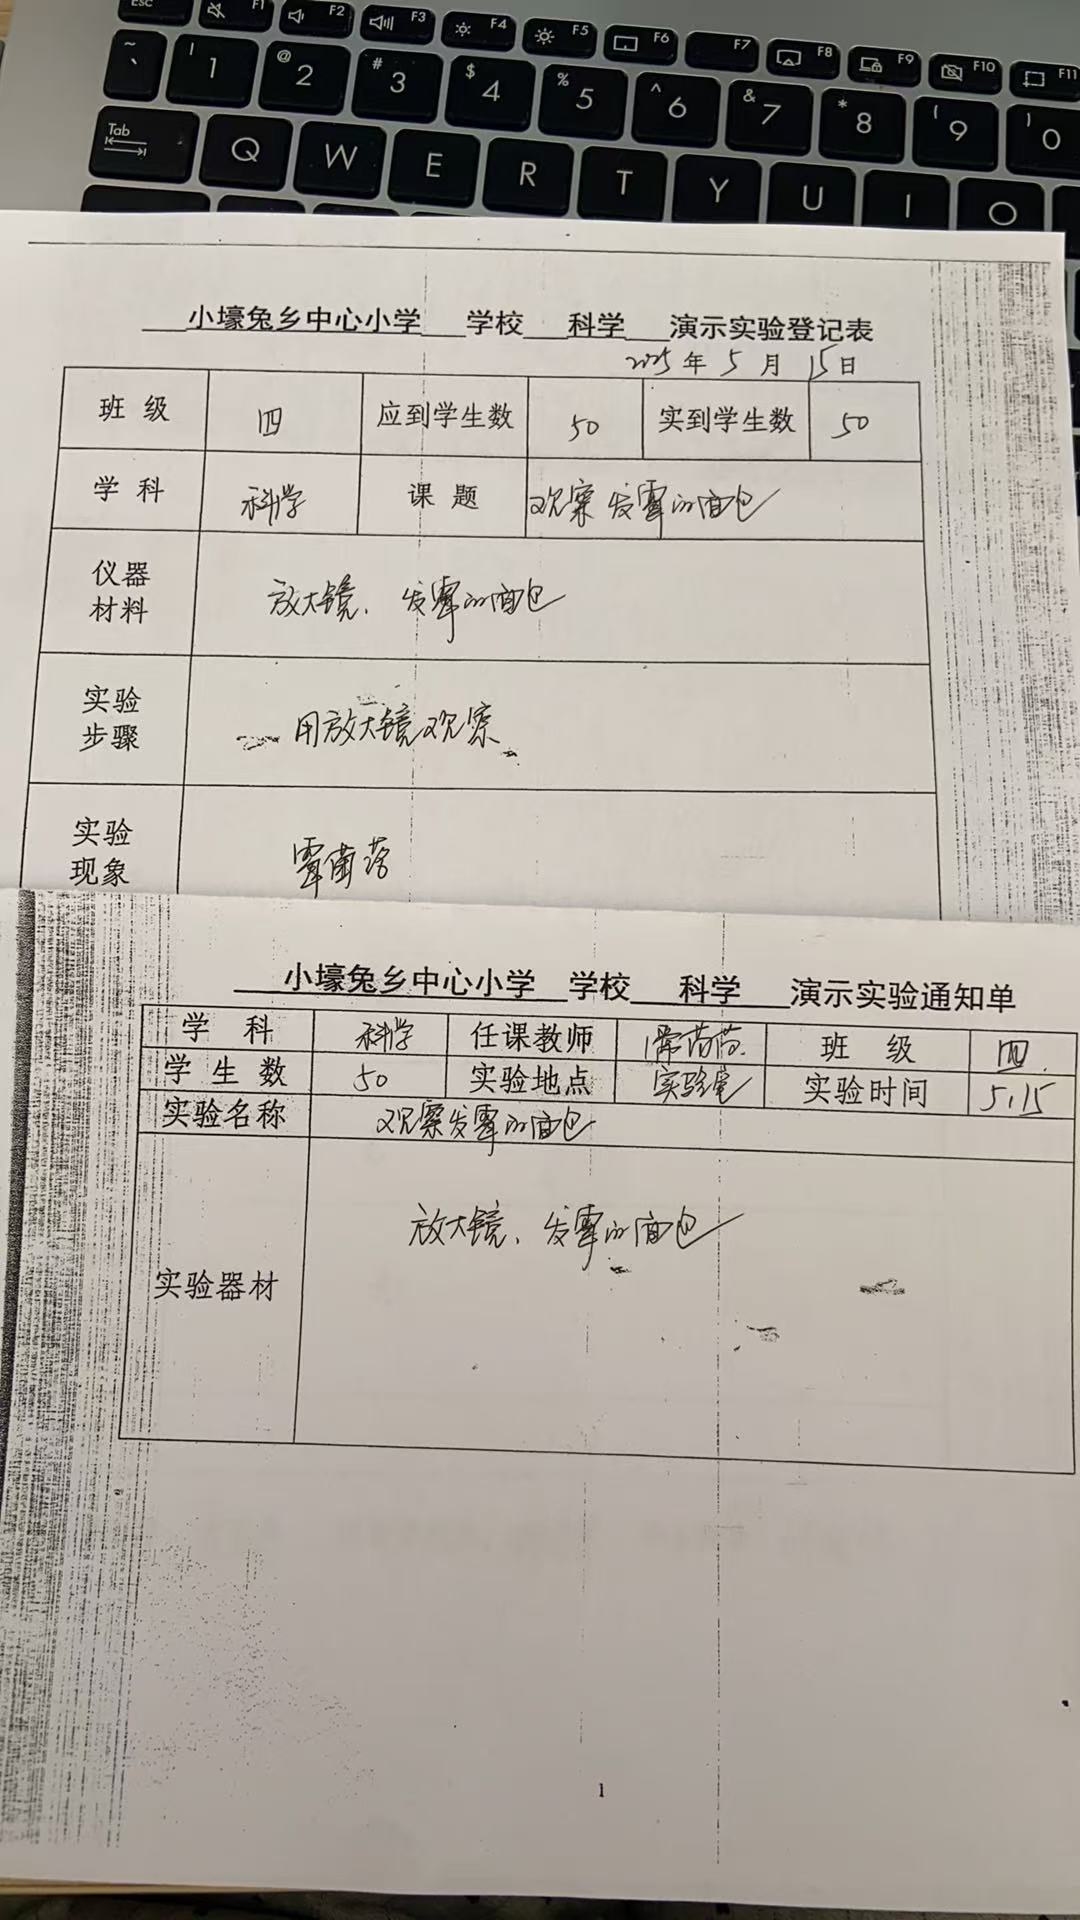 esc F1 F2 F3 F4 F5 F6 F7 F8 F9 F10 F11
~ ` ! 1 @ 2 # 3 $ 4 % 5 ^ 6 & 7 * 8 ( 9 ) 0
Tab Q W E R T Y U I O
小壕兔乡中心小学 学校 科学 演示实验登记表
2025年5月15日
班级 四 应到学生数 50 实到学生数 50
学科 科学 课题 观察发霉的面包
仪器材料 放大镜、发霉的面包
实验步骤 用放大镜观察
实验现象 霉菌落
小壕兔乡中心小学 学校 科学 演示实验通知单
学科 科学 任课教师 班级 四
学生数 50 实验地点 实验室 实验时间 5.15
实验名称 观察发霉的面包
实验器材 放大镜、发霉的面包
1